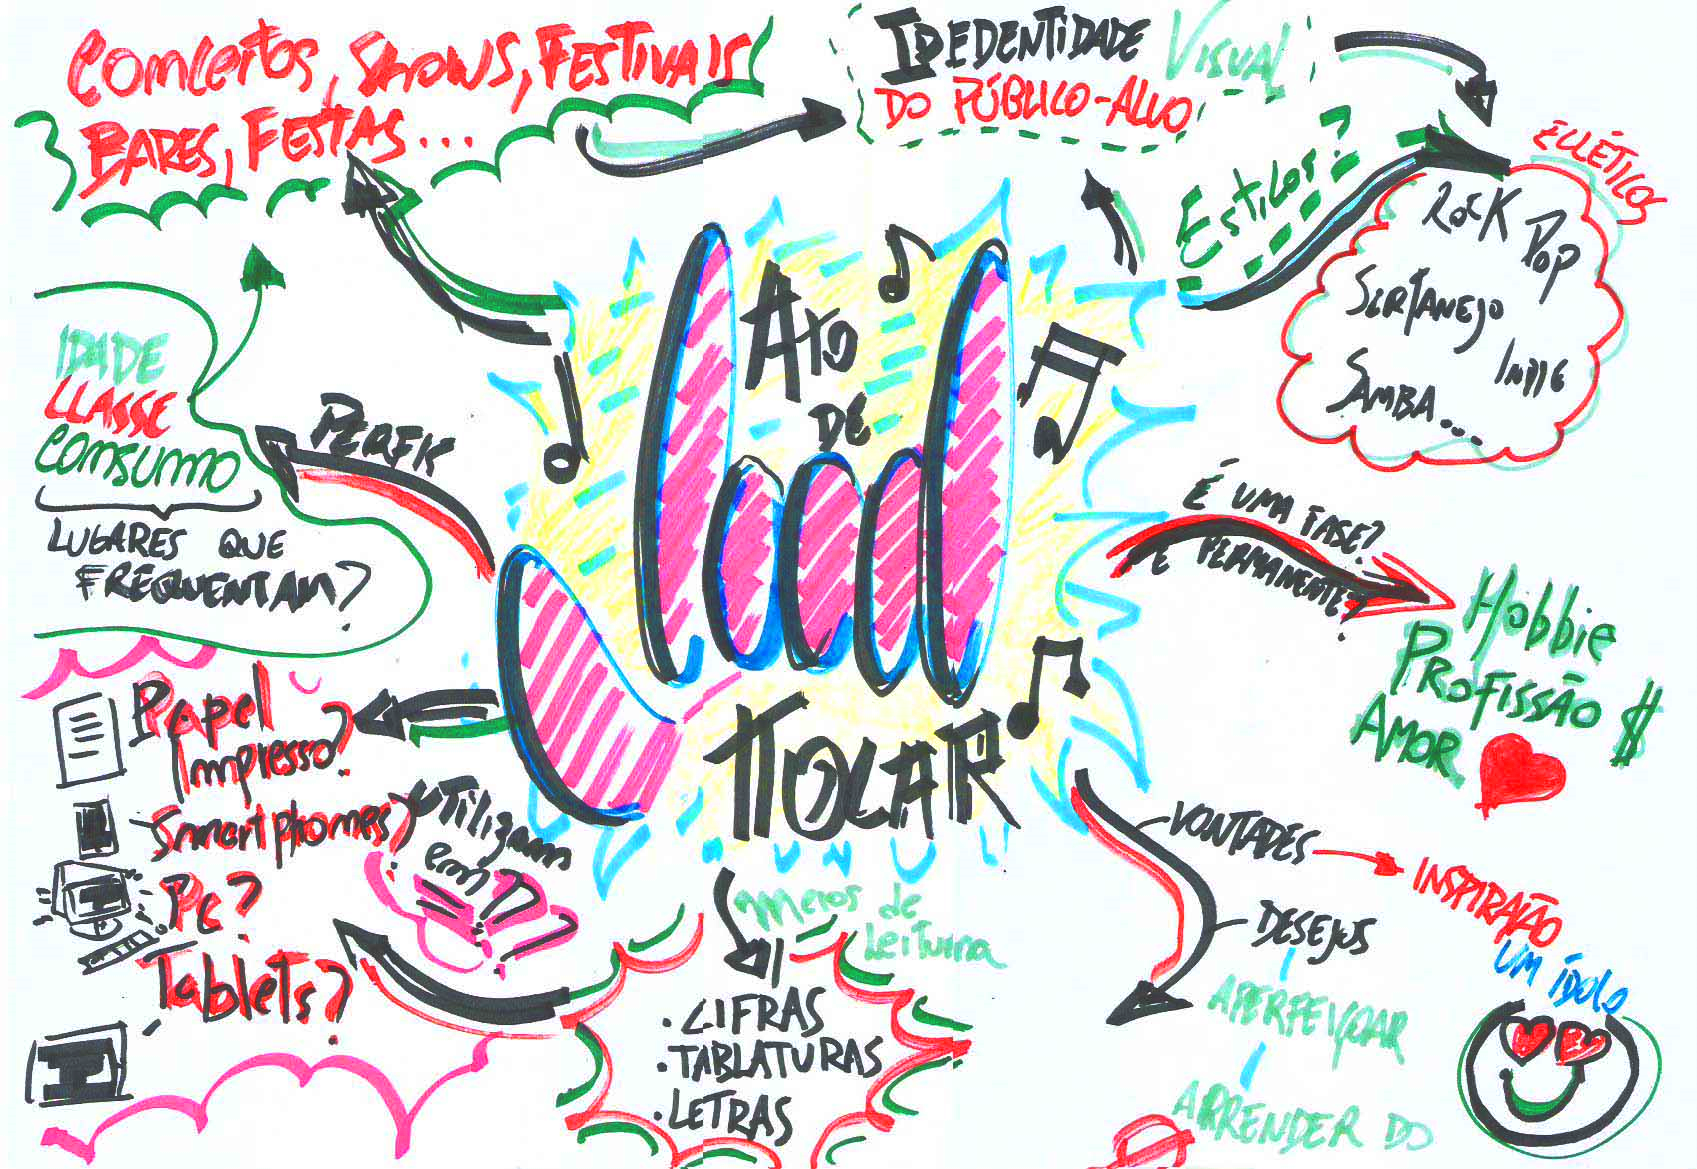 Comcertos, Shows, Festivais
Bares, Festas...
Idedentidade Visual
do Público-Alvo
Estilos?
Eclléticos
Rock
Pop
Sertanejo
Indie
Samba...
Ato
de
Tocar
Perfil
Idade
Classe
Comsumo
Lugares que
frequentam?
É uma fase?
É permanente?
Hobbie
Profissão $
Amor
Papel
Impresso?
Smartphomes?
Pc?
Tablets?
Utilizam
em?
meios de
Leitura
.Cifras
.Tablaturas
.Letras
Vontades
Inspiração
um ídolo
Desejos
Aperfeiçoar
Aprender do